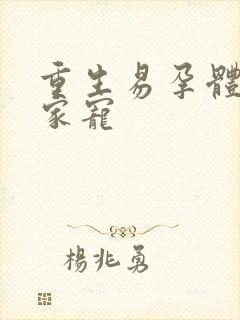 重生易孕體
家寵
楊兆勇